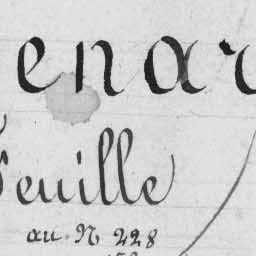 enar
Feuille
au N 228